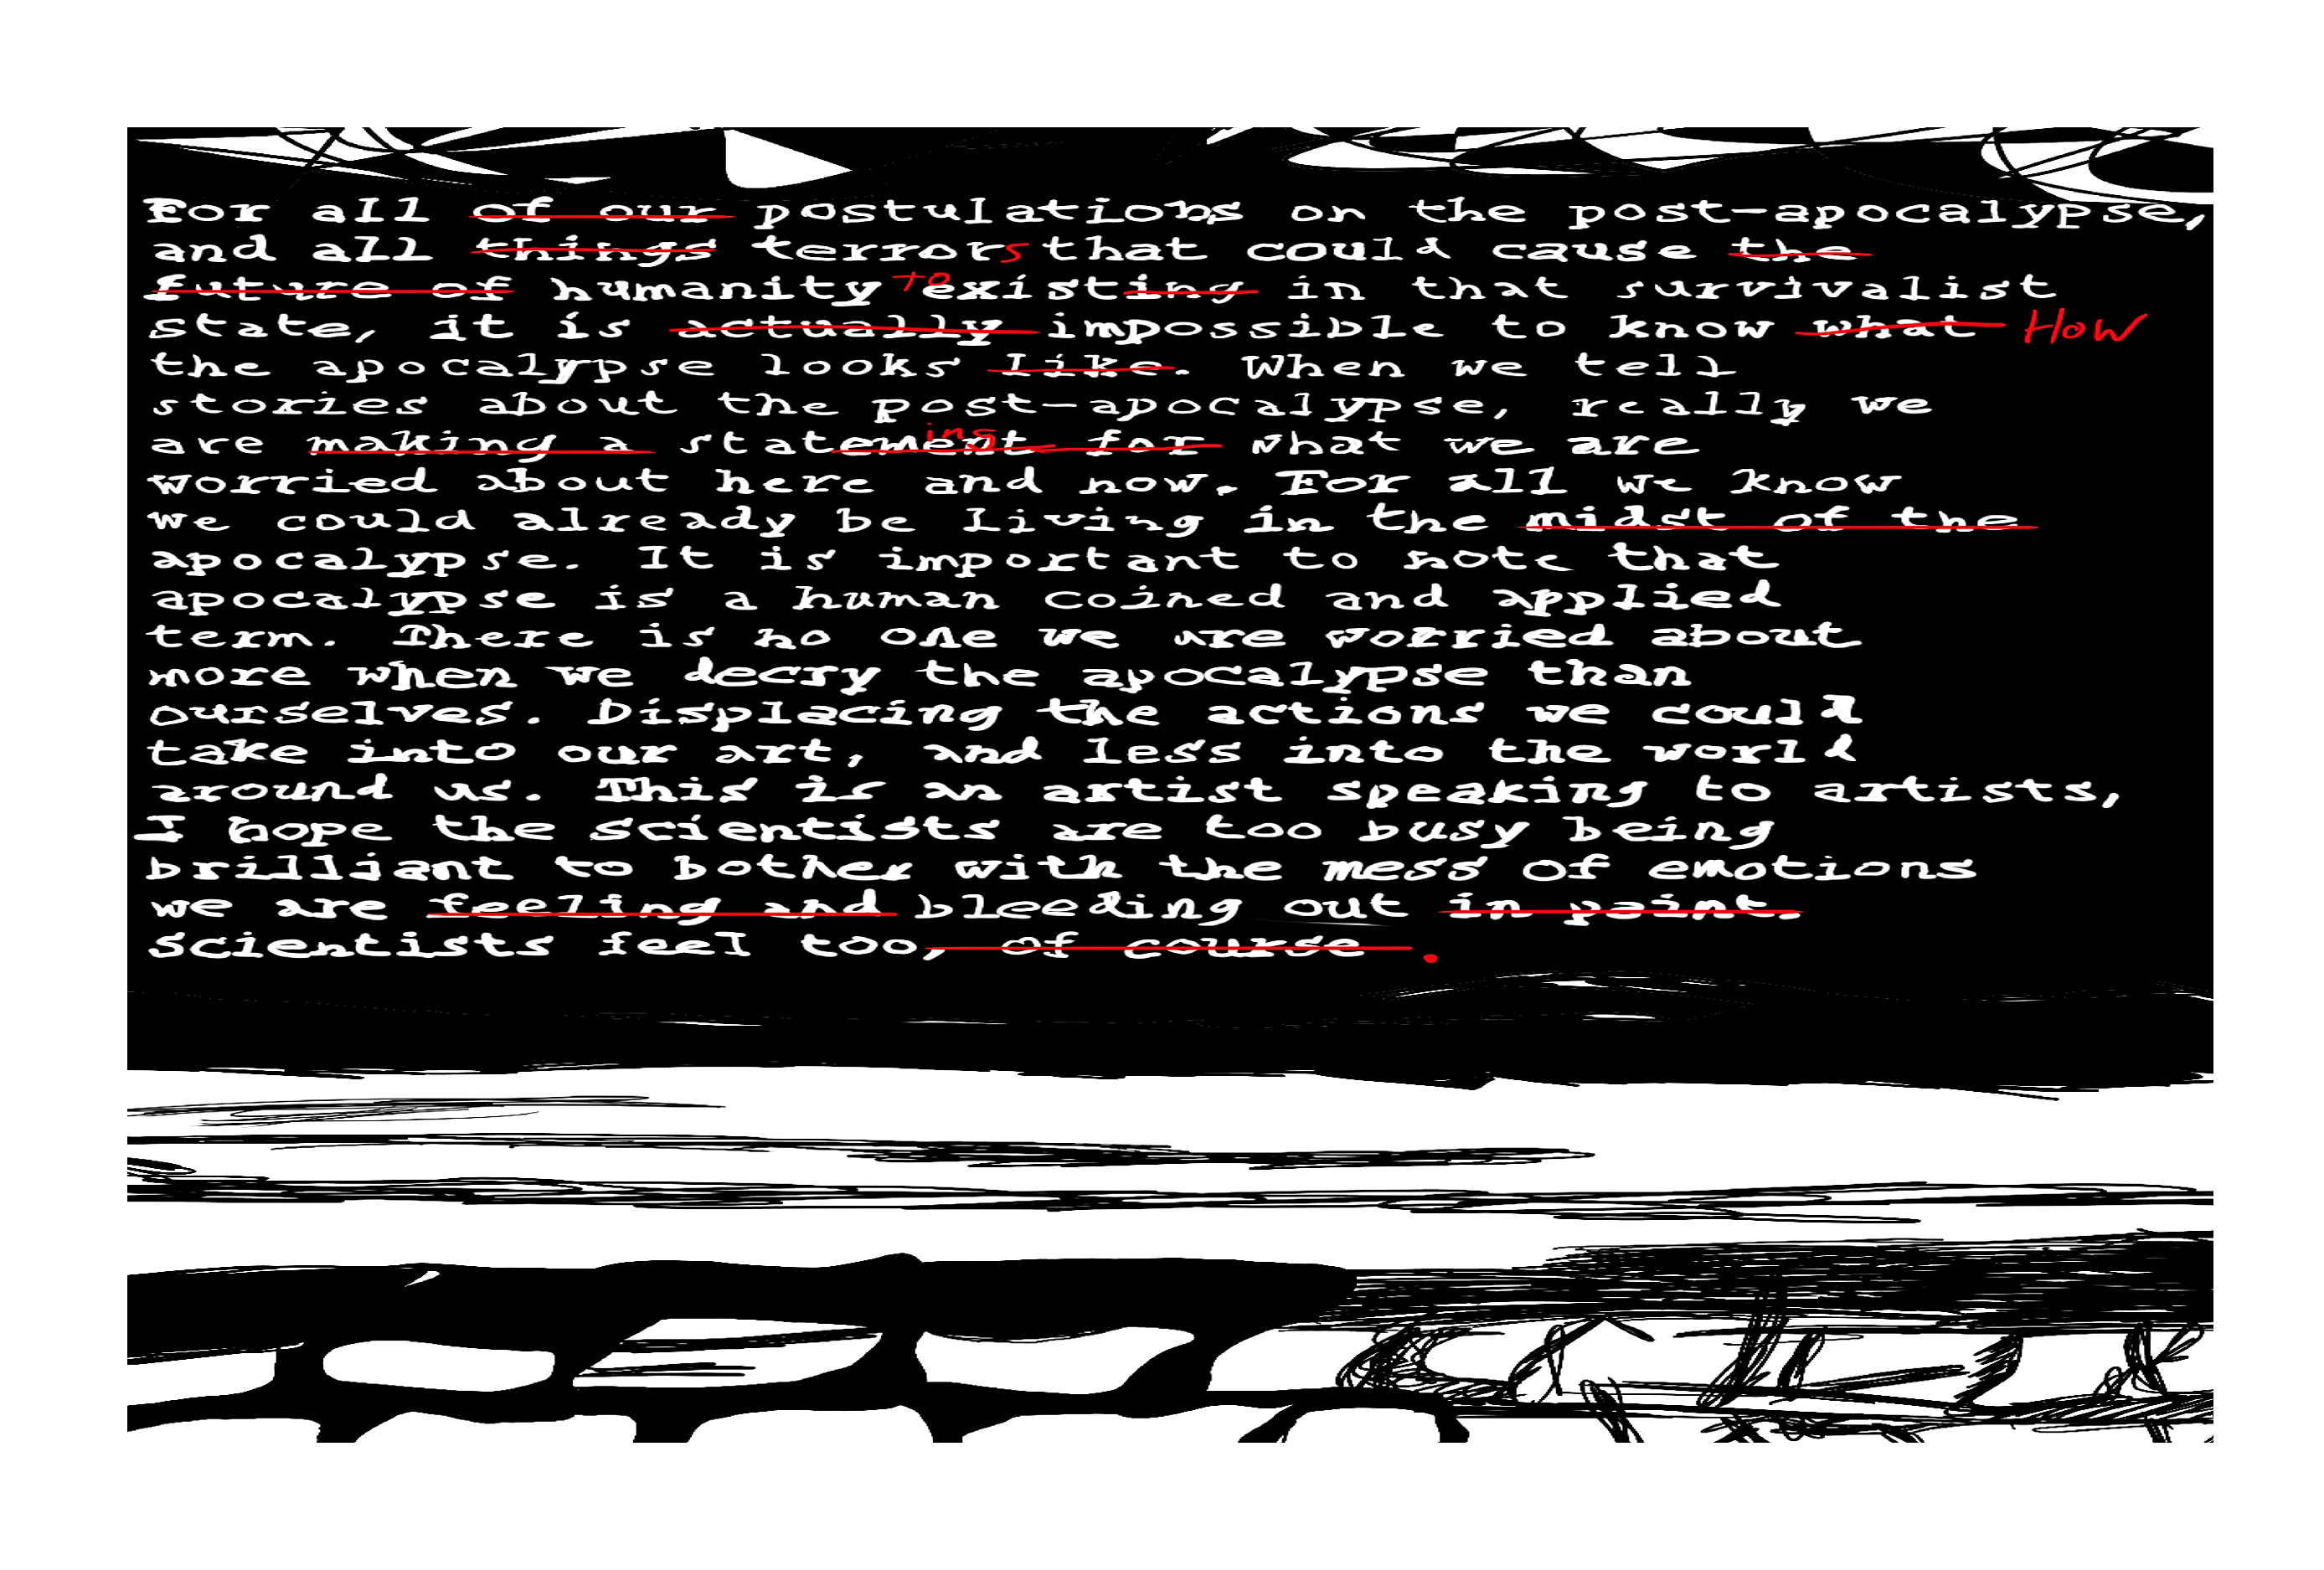 For all of our postulations on the post-apocalypse,
and all things terrors that could cause the
future of humanity to existing in that survivalist
state, it is actually impossible to know what How
the apocalypse looks like. When we tell
stories about the post-apocalypse, really we
are making a statement ing for what we are
worried about here and now. For all we know
we could already be living in the midst of the
apocalypse. It is important to note that
apocalypse is a human coined and applied
term. There is no one we are worried about
more when we decry the apocalypse than
ourselves. Displacing the actions we could
take into our art, and less into the world
around us. This is an artist speaking to artists,
I hope the scientists are too busy being
brilliant to bother with the mess of emotions
we are feeling and bleeding out in paint.
scientists feel too, of course .